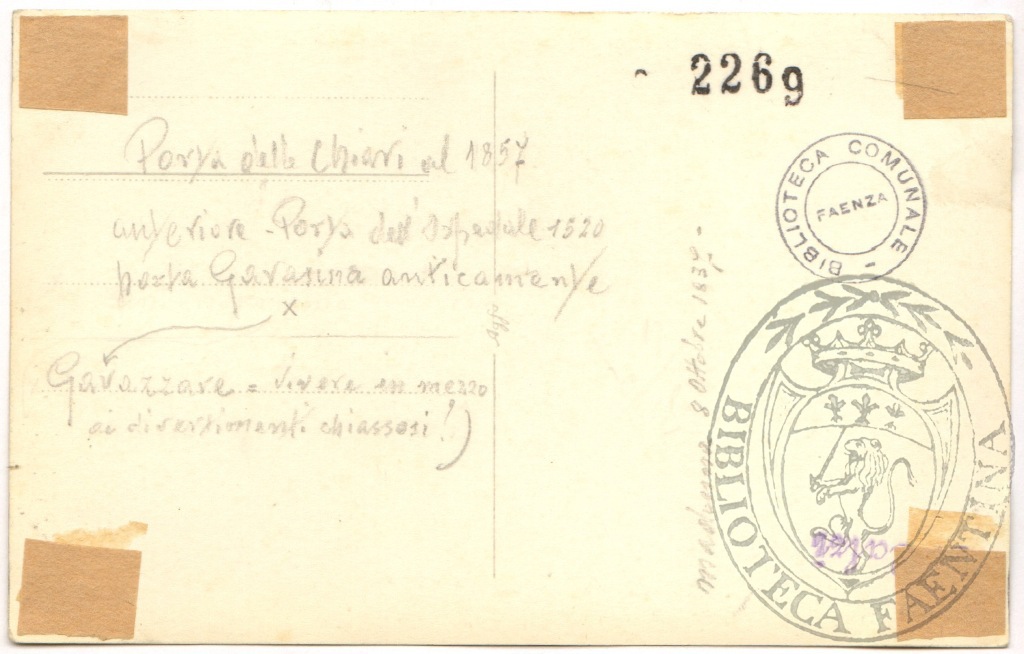 2269
BIBLIOTECA COMUNALE
FAENZA
Porta delle Chiavi al 1857
anteriore - Porta dell'Ospedale 1520
porta Gavasina anticamente
x
Gavazzare = vivere in mezzo
ai divertimenti chiassosi!)
Agfa
8 Ottobre 1937 -
BIBLIOTECA FAENTINA